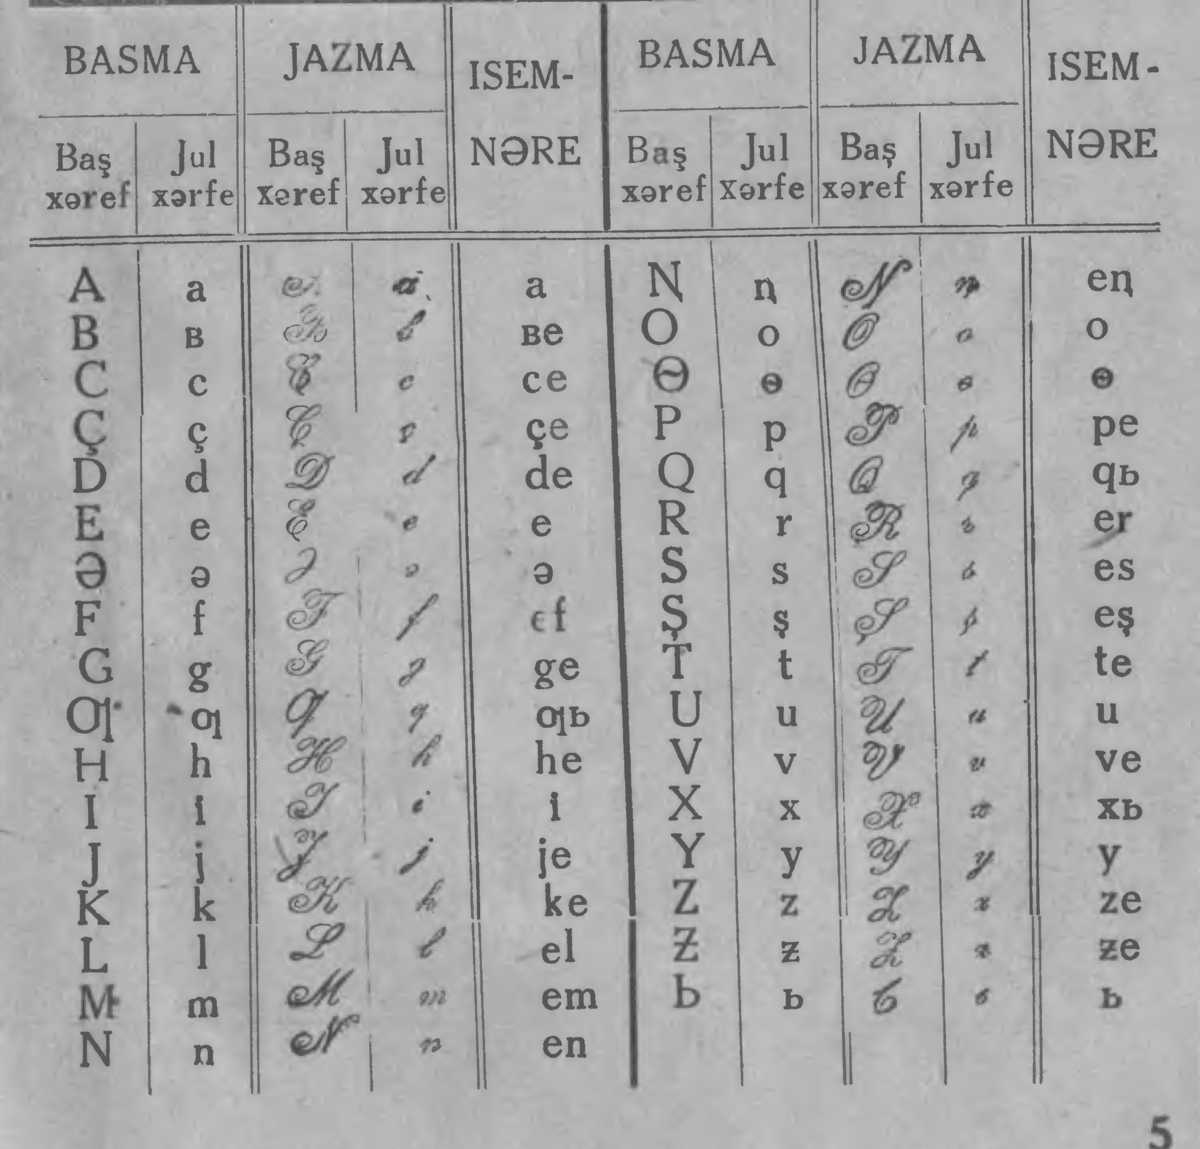 BASMA JAZMA ISEM-NƏRE BASMA JAZMA ISEM-NƏRE
Baş xəref Jul xərfe Baş xəref Jul xərfe Baş xəref Jul xərfe Baş xəref Jul xərfe
A a A a a Ꞑ ꞑ Ꞑ ꞑ eꞑ
B ʙ B ʙ ʙe O o O o o
C c C c ce Ɵ ɵ Ɵ ɵ ɵ
Ç ç Ç ç çe P p P p pe
D d D d de Q q Q q qь
E e E e e R r R r er
Ə ə Ə ə ə S s S s es
F f F f ef Ş ş Ş ş eş
G g G g ge T t T t te
Ƣ ƣ Ƣ ƣ ƣь U u U u u
H h H h he V v V v ve
I i I i i X x X x xь
J j J j je Y y Y y y
K k K k ke Z z Z z ze
L l L l el Ƶ ƶ Ƶ ƶ ƶe
M m M m em Ь ь Ь ь ь
N n N n en
5